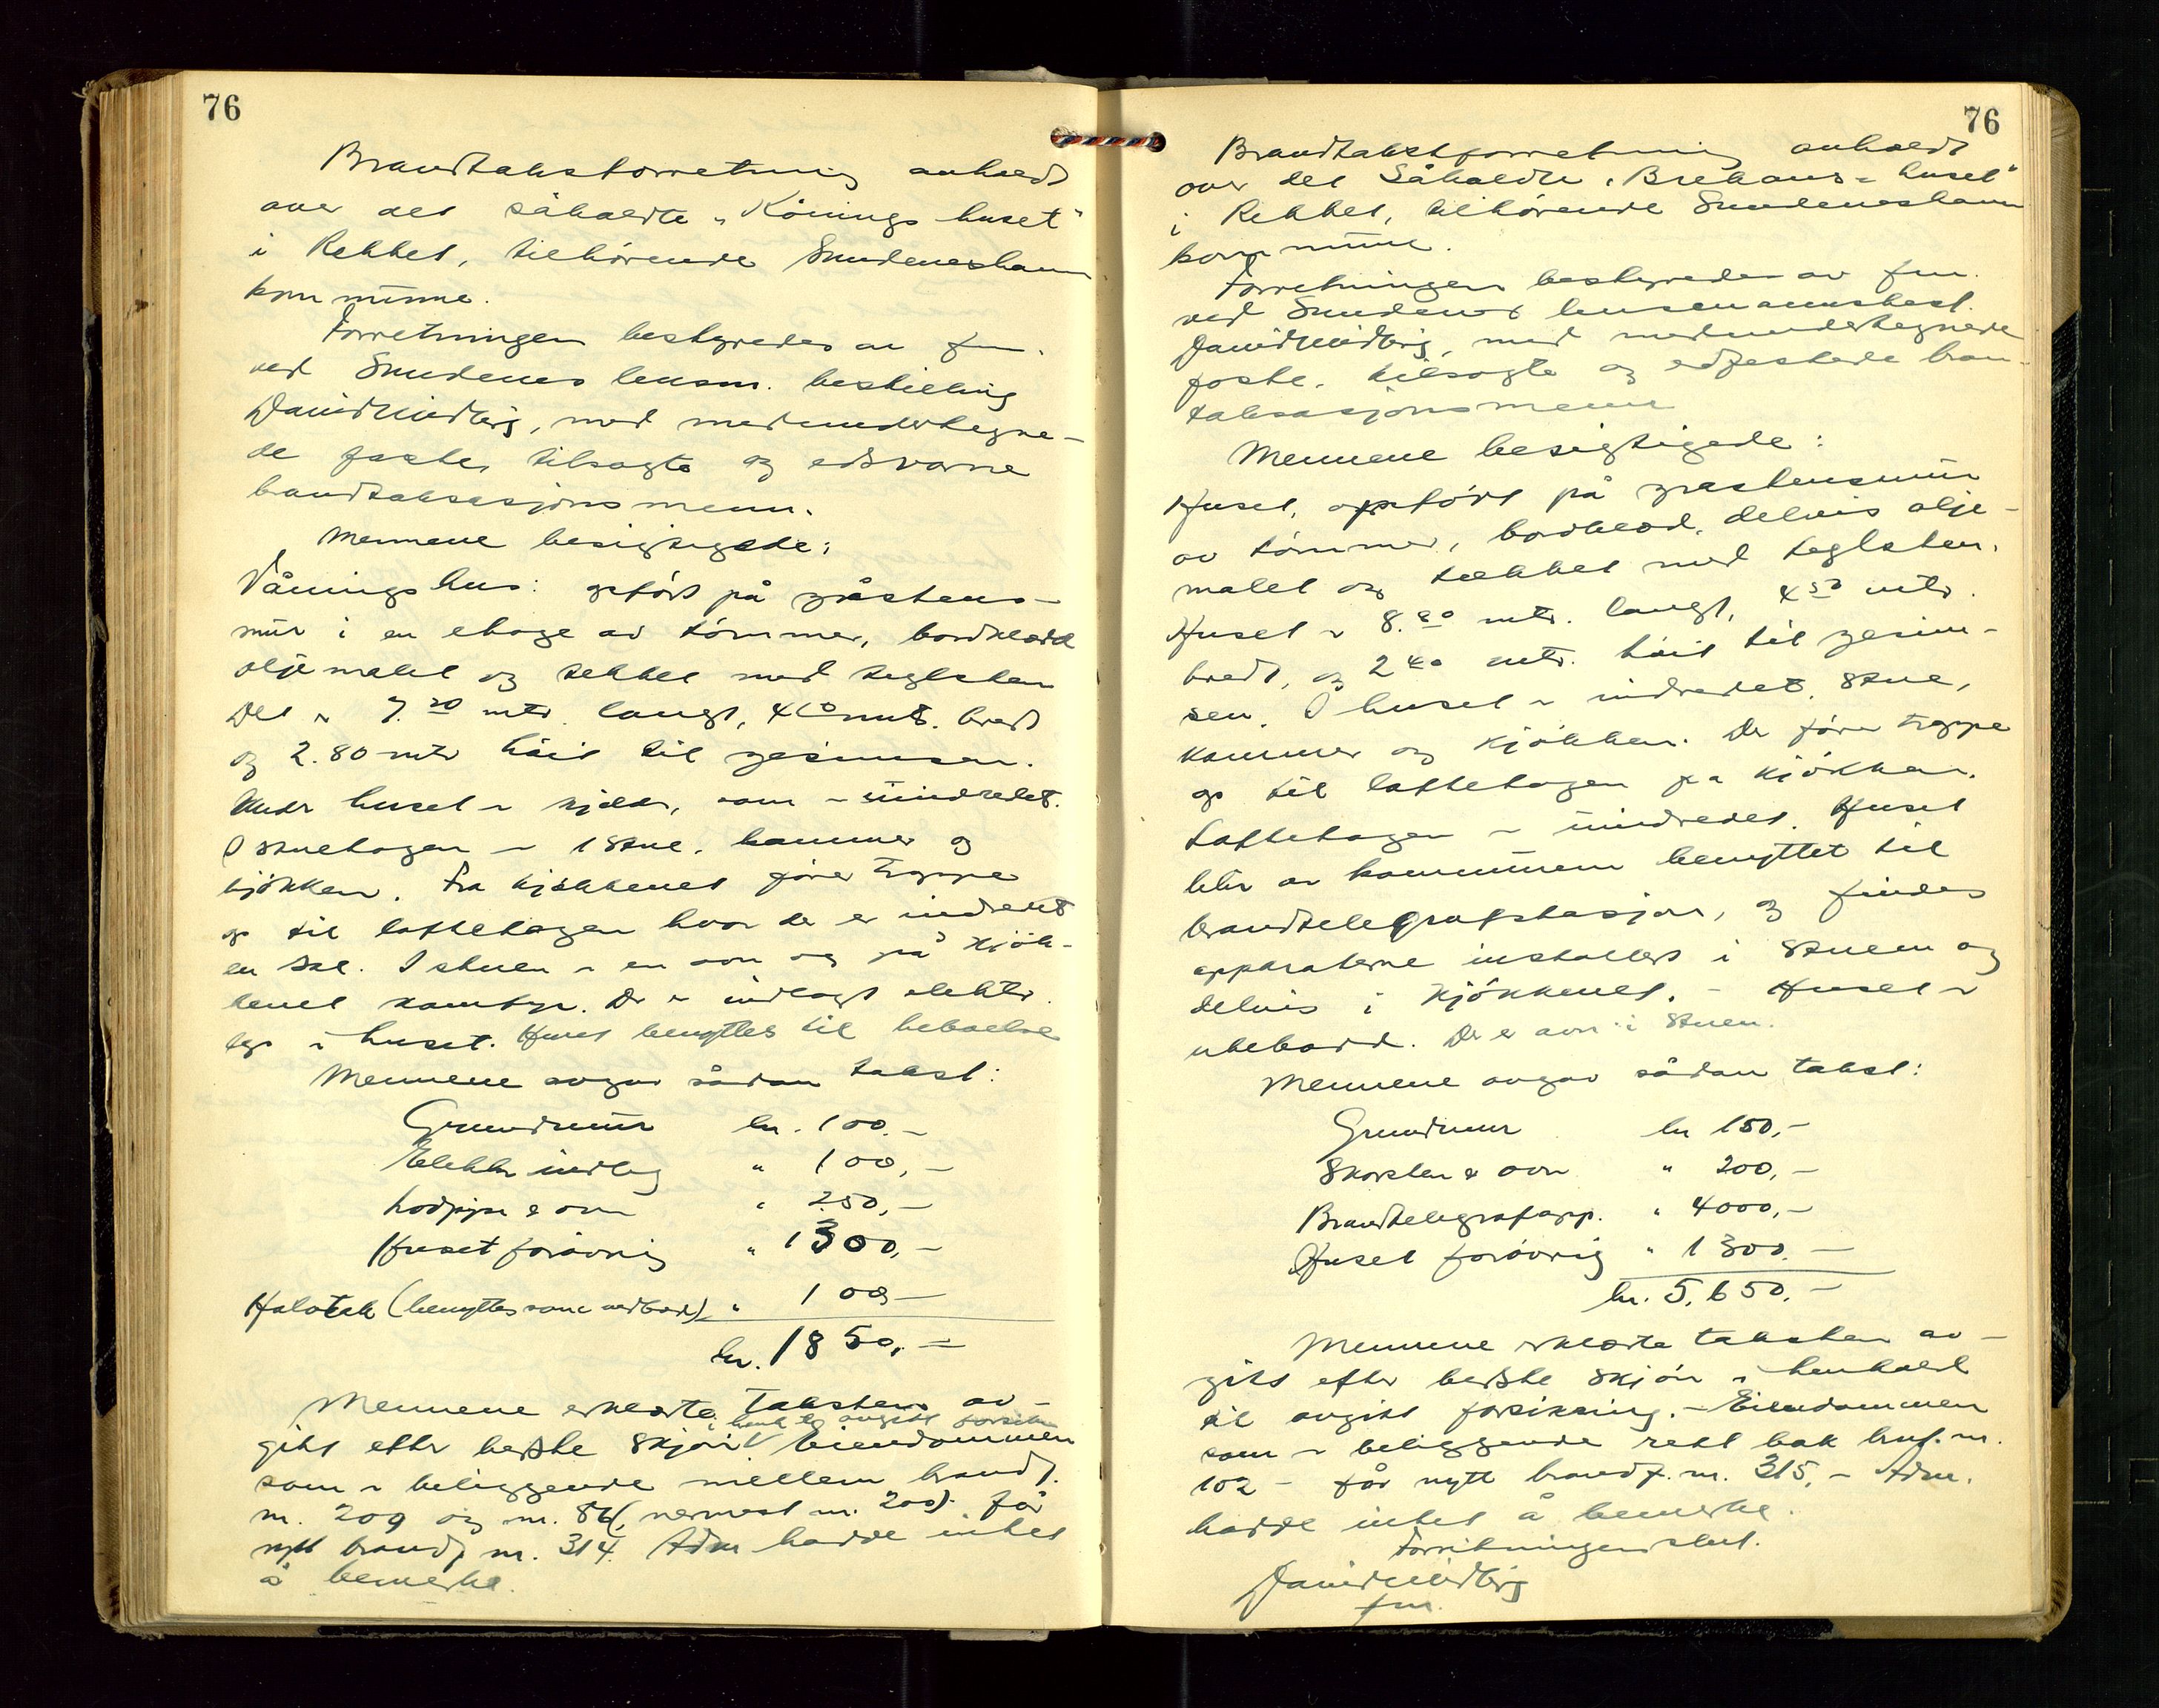 76
Brandtakstforretning avholdt
over det såkaldte "Könings huset"
i Rekket, tilhörende Skudeneshavn
kommune.
Forretningen bestyredes av fm.
ved Skudenes lensm. bestilling
David Midbøj, med medundertegne-
de faste, tilsagte og edsvorne
brandtaksasjonsmenn.
Mennene besigtigede:
Våningshus: opfört på gråstens-
mur i en etage av tömmer, bordklædd
oljemalet og tekket med teglsten
Det er 7.20 mtr. langt, 4 mtr. bredt
og 2.80 mtr höit til gesimsen.
Under huset er kjelder, som er uindredet.
I stuetagen er 1 stue, kammer og
kjökken. Fra kjökkenet förer trappe
op til loftetagen hvor der er indredet
en sal. I stuen er en ovn og på kjök-
kenet komfyr. Der er indlagt elektr.
lys i huset. Huset benyttes til beboelse
Mennene avgav sådan takst:
Grundmur kr. 100.-
Elektr indleg " 100,-
Rodpipe & ovn " 250,-
Huset forövrig " 1300,-
Halvtak (benyttes som vedbod) " 100,-
kr. 1850,-
Mennene erklærte taksten av-
henh. til avgitt forsikr.
gitt efter beßte skjön i Eiendommen
som er beliggende mellem brandf.
nr. 209 og nr. 86 (nermest nr. 200) får
nytt brandf nr. 314. Adm hadde intet
å bemerke.
76
Brandtakstforretning avholdt
over det såkaldte "Brekans-huset"
i Rekket, tilhörende Skudeneshavn
kommune.
Forretningen bestyredes av fm.
ved Skudenes lensmannsbest.
David Midbøj, med medundertegnede
faste, tilsagte og edfestede bran-
taksasjonsmenn
Mennene besigtigede:
Huset, opfört på gråstensmur
av tömmer, bordklæd, delvis olje-
malet og tækket med teglsten.
Huset er 8.20 mtr. langt, 4 50 mtr.
bredt, og 2 40 mtr. höit til gesim-
sen. I huset er indredet, stue,
kammer og kjökken. Der förer trappe
op til loftetagen fra kjökken.
Loftetagen er uindredet. Huset
blir av kommunen benyttet til
brandtelegrafstasjon, og findes
apparaterne installert i stuen og
delvis i kjökkenet. - Huset er
ubebodd. Der er ovn i stuen.
Mennene avgav sådan takst:
Grundmur kr 150,-
Skorsten & ovn " 200,-
Brandtelegrafapp. " 4000,-
Huset forövrig " 1300.-
kr. 5.650.-
Mennene erklærte taksten av-
gitt efter beßte skjön i henhold
til avgitt forsikring. - Eiendommen
som er beliggende rett bak brnf. nr.
102 - får nytt brandf. nr. 315. - Adm.
hadde intet å bemerke.
Forretningen slut.
David Midbøj
fm.